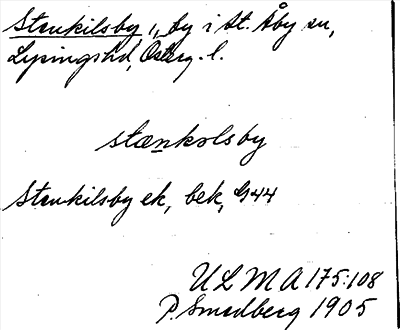 Stenkilsby 1, by i St. Åby sn,
Lysings hd, Österg. l.
stænkɔlsby
Stenkilsby ek, bek, G44
ULMA 175:108
P. Smedberg 1905